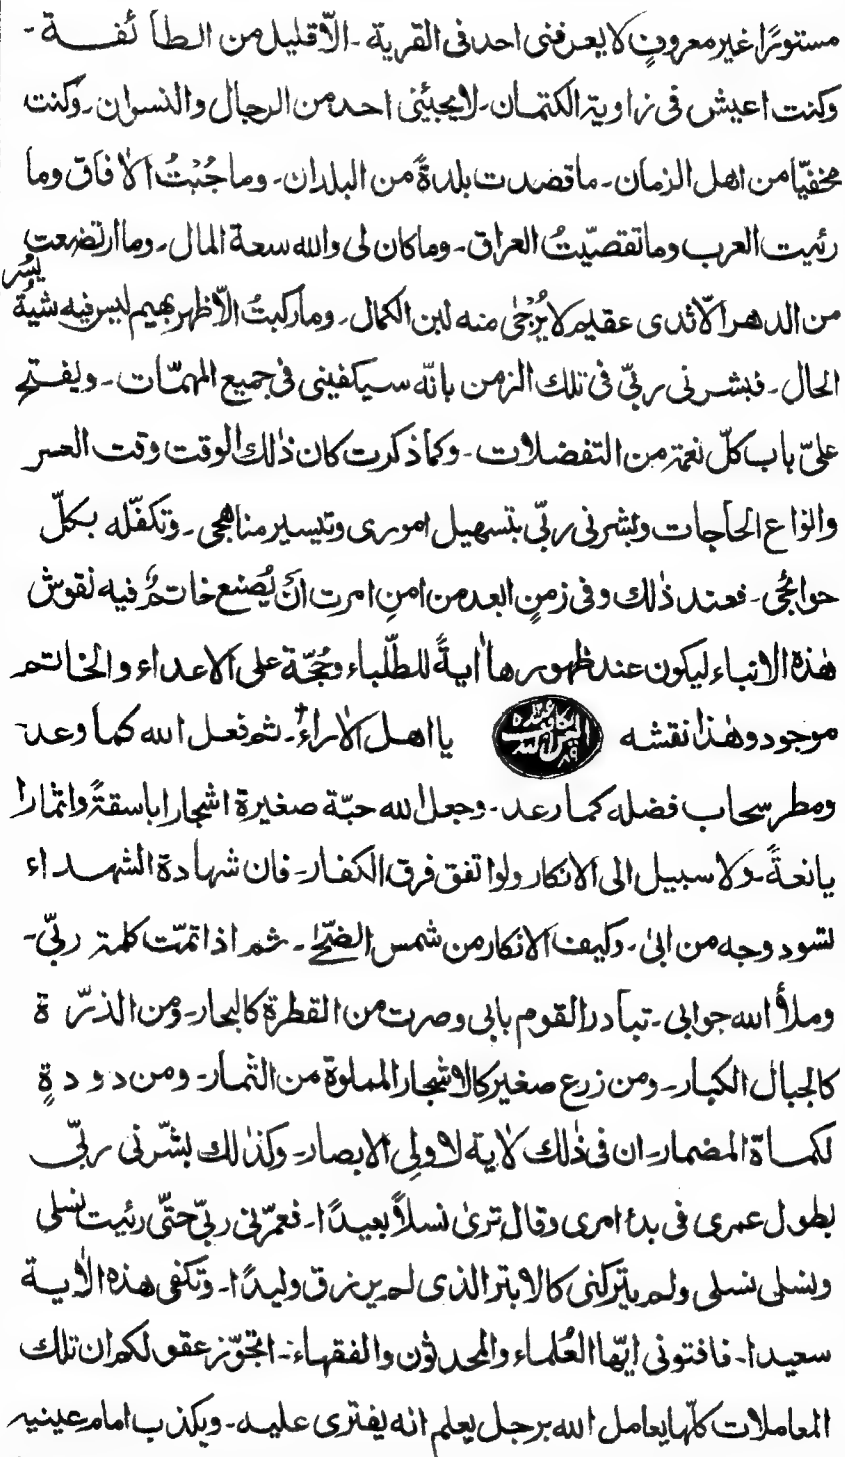 مستورًا غير معروفٍ لا يعرفنى احد فى القرية ۔ الّا قليل من الطآئفة ۔
وكنت اعيش فى زاوية الكتمان ۔ لا يجيئنى احد من الرجال والنسوان ۔ وكنت
مخفيّا من اهل الزمان ۔ ما قصدت بلدةً من البلدان ۔ وما جُبْتُ الاٰفاق وما
رئيت العرب وما تقصّيتُ العراق ۔ وما كان لى والله سعة المال ۔ وما ارتضعت
من الدهر الّا ثدى عقيم لا يُرْجٰى منه لبن الكمال ۔ وما ركبتُ الّا ظهر بهيم ليس فيه شيةُ يسر
الحال ۔ فبشرنى ربّى فى تلك الزمن بانّه سيكفينى فى جميع المهمّات ۔ ويفتح
علىّ باب كلّ نعمة من التفضلات ۔ وكما ذكرت كان ذٰلك الوقت وقت العسر
وانواع الحاجات وبشرنى ربّى بتسهيل امورى وتيسير مناهجى ۔ وتكفّله بكلّ
حوائجى ۔ فعند ذٰلك وفى زمنٍ ابعد من امنٍ امرت انْ يُصنع خاتمٌ فيه نقوش
هٰذه الانباء ليكون عند ظهورها اٰيةً للطّلباء وحُجّة على الاعداء والخاتم
موجود وهٰذا نقشه اليس الله بكاف عبده يا اهل الاٰراءِ ۔ ثم فعل الله كما وعد
ومطر سحاب فضله كما رعد ۔ وجعل الله حبّة صغيرة اشجارا باسقةً واثمارا
يانعةً ۔ ولا سبيل الى الانكار ولو اتفق فرق الكفار ۔ فان شهادة الشهداء
تسود وجه من ابىٰ ۔ وكيف الانكار من شمس الضّحٰى ۔ ثم اذا تمّت كلمة ربّى ۔
وملأ الله جوابى ۔ تبادر القوم بابى وصرت من القطرة كالبحار ۔ ومن الذرّة
كالجبال الكبار ۔ ومن زرع صغير كالاشجار المملوة من الثمار ۔ ومن دودةٍ
لكماة المضمار ۔ ان فى ذٰلك لاٰية لاولِى الابصار ۔ وكذٰلك بشّرنى ربّى
بطول عمرى فى بدء امرى وقال ترىٰ نسلاً بعيدًا ۔ فعمّرنى ربّى حتّى رئيت نسلى
ونسلى نسلى ولم يتركنى كالابتر الذى لم يرزق وليدًا ۔ وتكفى هذه الاٰية
سعيدا ۔ فافتونى ايّها العُلماء والمحدثون والفقهاء ۔ اتجوّز عقولكم ان تلك
المعاملات كلّها يعامل الله برجل يعلم انه يفترى عليه ۔ ويكذب امام عينيه